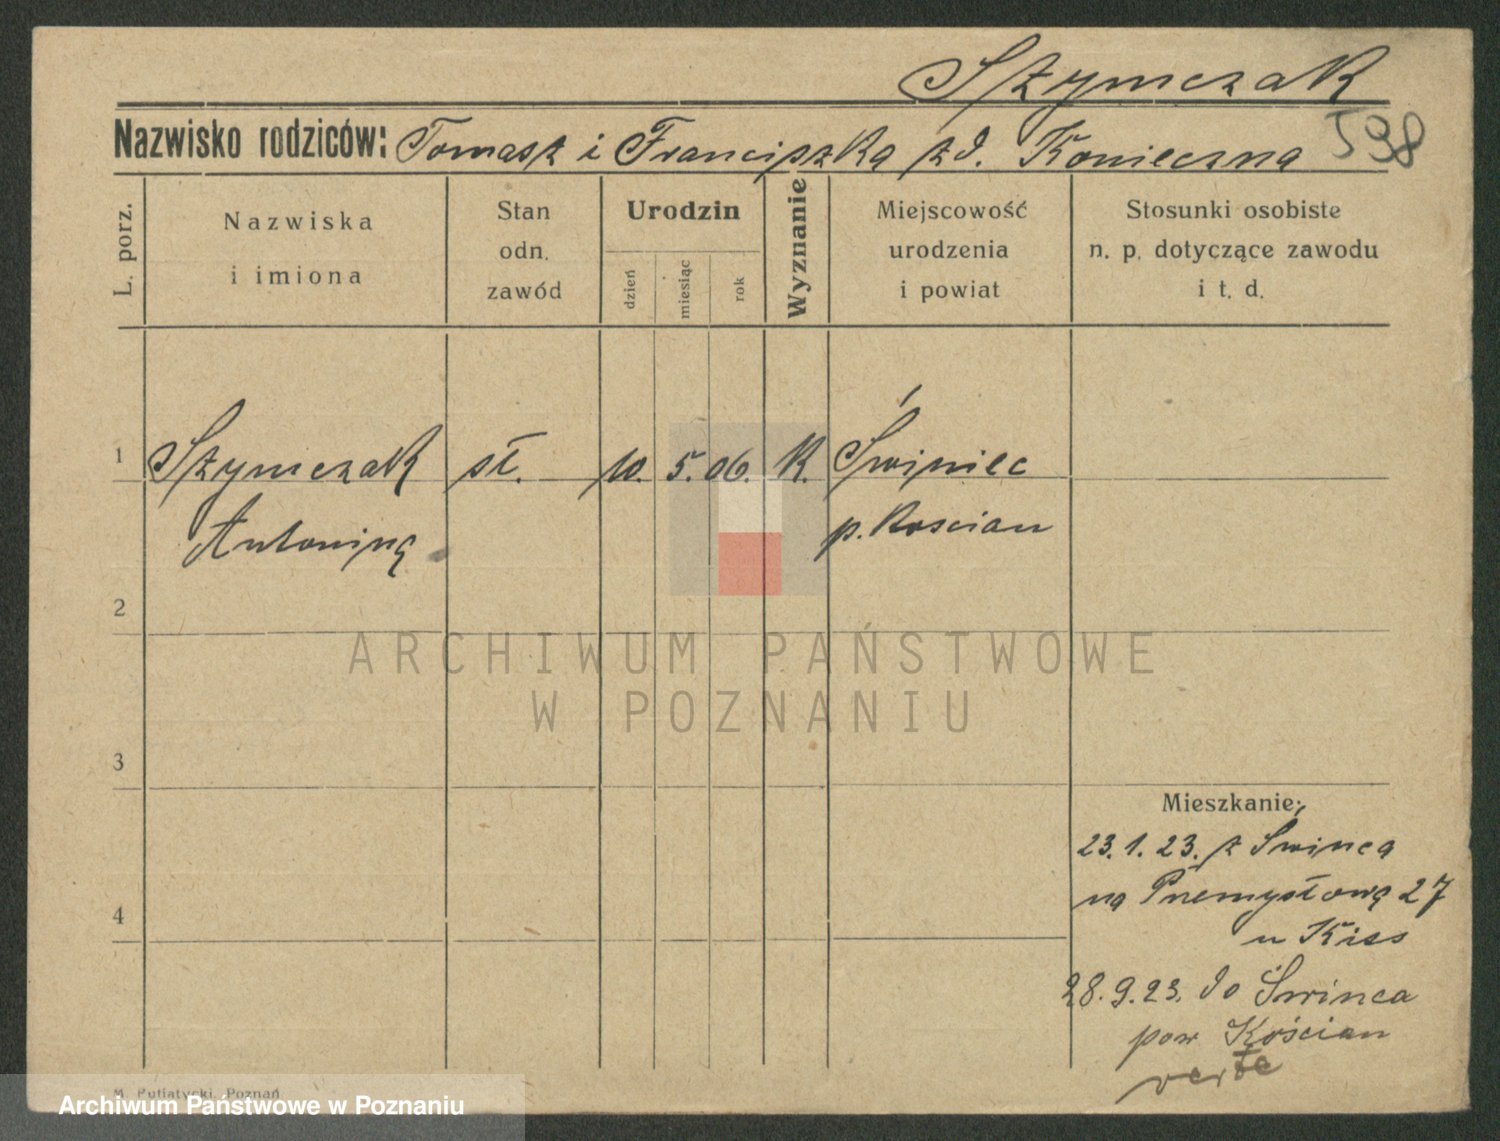 Szymczak
Nazwisko rodziców: Tomasz i Franciszka zd. Konieczna
598
L. porz.
Nazwiska
i imiona
Stan
odn.
zawód
Urodzin
dzień
miesiąc
rok
Wyznanie
Miejscowość
urodzenia
i powiat
Stosunki osobiste
n. p. dotyczące zawodu
i t. d.
1 Szymczak sł. 10. 5. 06. K. Świniec
Antonina p. Kościan
2
ARCHIWUM PAŃSTWOWE
W POZNANIU
3
Mieszkanie:
23.1.23. z Świńca
4
na Przemysłową 27
u Kiss
28.9.23. do Świńca
pow Kościan
verte
M. Putiatycki, Poznań
Archiwum Państwowe w Poznaniu